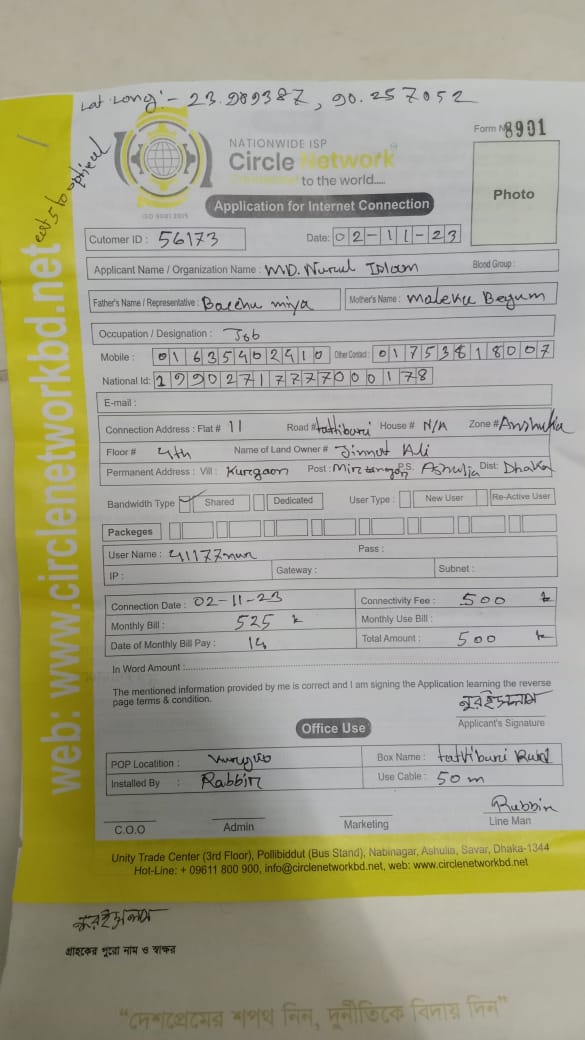 Lat Long:- 23.989387, 90.257052
Form № 8901
cat 5 to optical
NATIONWIDE ISP
Circle Network
Connected to the world.....
ISO 9001:2015
Application for Internet Connection
Photo
Cutomer ID : 56173
Date: 02-11-23
Applicant Name / Organization Name : MD. Nurul Islam
Blood Group :
Father's Name / Representative : Bacchu miya
Mother's Name : Maleka Begum
Occupation / Designation : Job
Mobile : 01635402410 Other Contact : 01753818007
National Id: 19902717777000178
E-mail :
Connection Address : Flat # 11 Road # tattibari House # N/A Zone # Anshulia
Floor # 4th Name of Land Owner # Jinnat Ali
Permanent Address : Vill : Kurgaon Post : P.S. Ashulia Dist: Dhaka
Bandwidth Type Shared Dedicated User Type : New User Re-Active User
Packeges
User Name : 41177nur Pass :
IP : Gateway : Subnet :
Connection Date : 02-11-23 Connectivity Fee : 500 tk
Monthly Bill : 525 tk Monthly Use Bill :
Date of Monthly Bill Pay : 14 Total Amount : 500 tk
In Word Amount :
The mentioned information provided by me is correct and I am signing the Application learning the reverse
page terms & condition.
নুরইসলাম
Applicant's Signature
Office Use
POP Locatition : Box Name : tattibari
Installed By : Rabbin Use Cable : 50 m
Rubbin
C.O.O Admin Marketing Line Man
Unity Trade Center (3rd Floor), Pollibiddut (Bus Stand), Nabinagar, Ashulia, Savar, Dhaka-1344
Hot-Line: + 09611 800 900, info@circlenetworkbd.net, web: www.circlenetworkbd.net
web: www.circlenetworkbd.net
নুরইসলাম
গ্রাহকের পুরো নাম ও স্বাক্ষর
“দেশপ্রেমের শপথ নিন, দুর্নীতিকে বিদায় দিন”